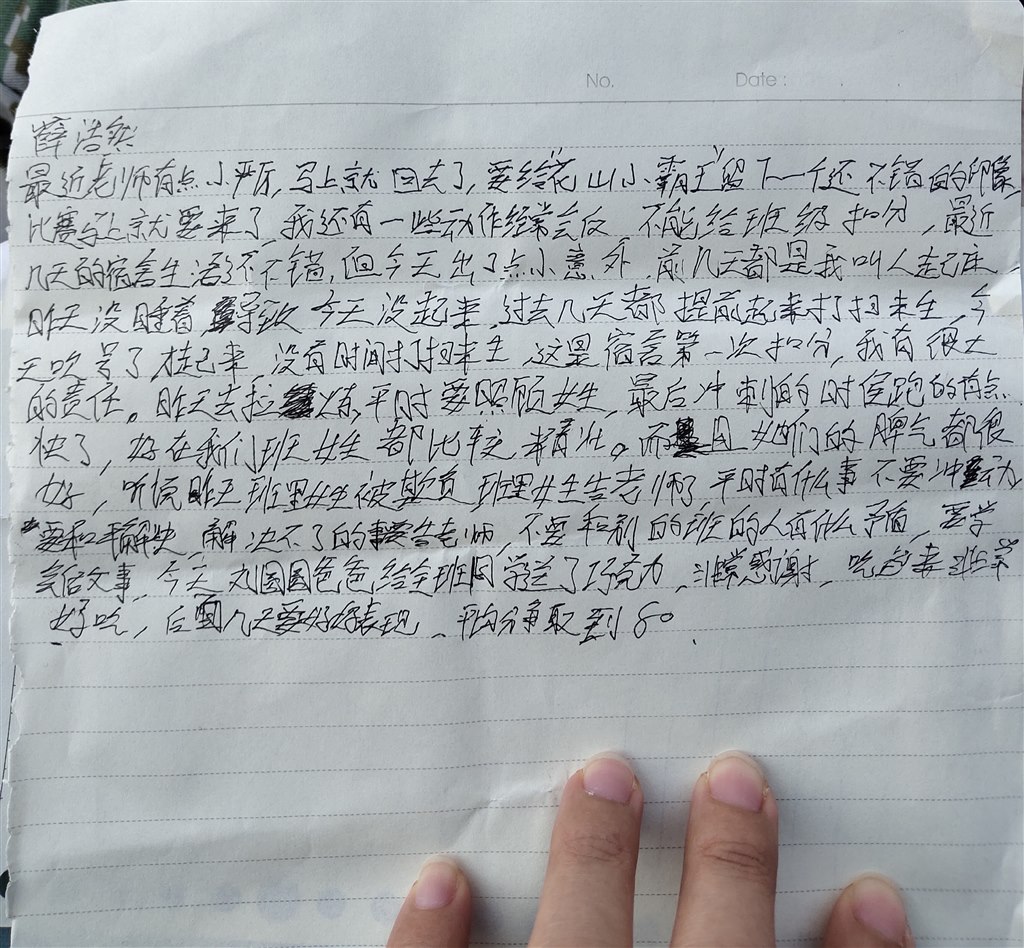 No. Date:
薛浩然
最近老师有点小严厉,马上就回去了,要给"花山小霸王"留下一个还不错的印象,
比赛马上就要来了,我还有一些动作经常会反 不能给班级扣分,最近
几天的宿舍生活 不错,但今天出了点小意外,前几天都是我叫人起床
昨天没睡着 导致 今天没起来,过去几天都提前起来打扫卫生,今
天吹号了才起来,没有时间打扫卫生,这是宿舍第一次扣分,我有很大
的责任。昨天去拉练,平时要照顾女生,最后冲刺的时侯跑的有点
快了,好在我们班女生都比较 壮。而且她们的脾气都很
好,听说昨天班里女生被欺负,班里女生告老师了,平时有什么事不要冲动
要和平解决,解决不了的事要告老师,不要和别的班的人有什么矛盾,要学
会 事,今天刘圆圆爸爸给全班同学送了巧克力,非常感谢,吃起来非常
好吃,后面几天要好好表现、平均分争取到80